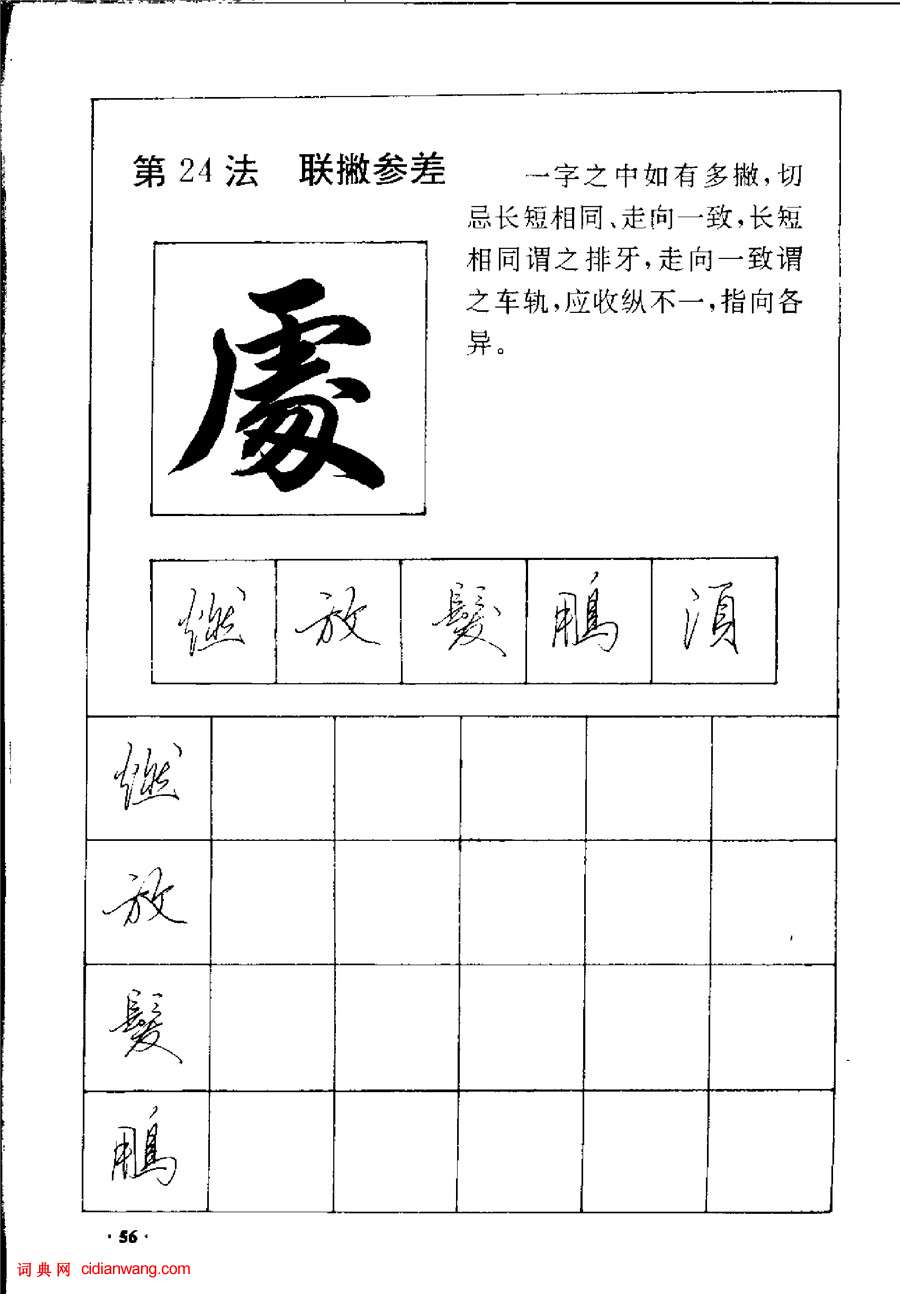 第24法 联撇参差
一字之中如有多撇，切
忌长短相同、走向一致，长短
相同谓之排牙，走向一致谓
之车轨，应收纵不一，指向各
异。
處
燃 放 髮 鵬 須
燃
放
髮
鵬
·56·
词典网 cidianwang.com